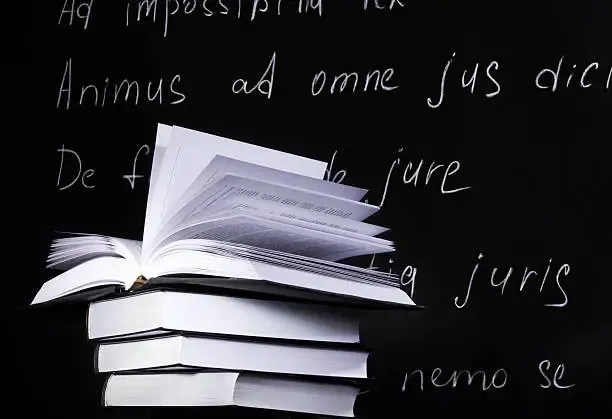 Ad impossibilia lex
Animus ad omne jus dici
De f de jure
tia juris
nemo se